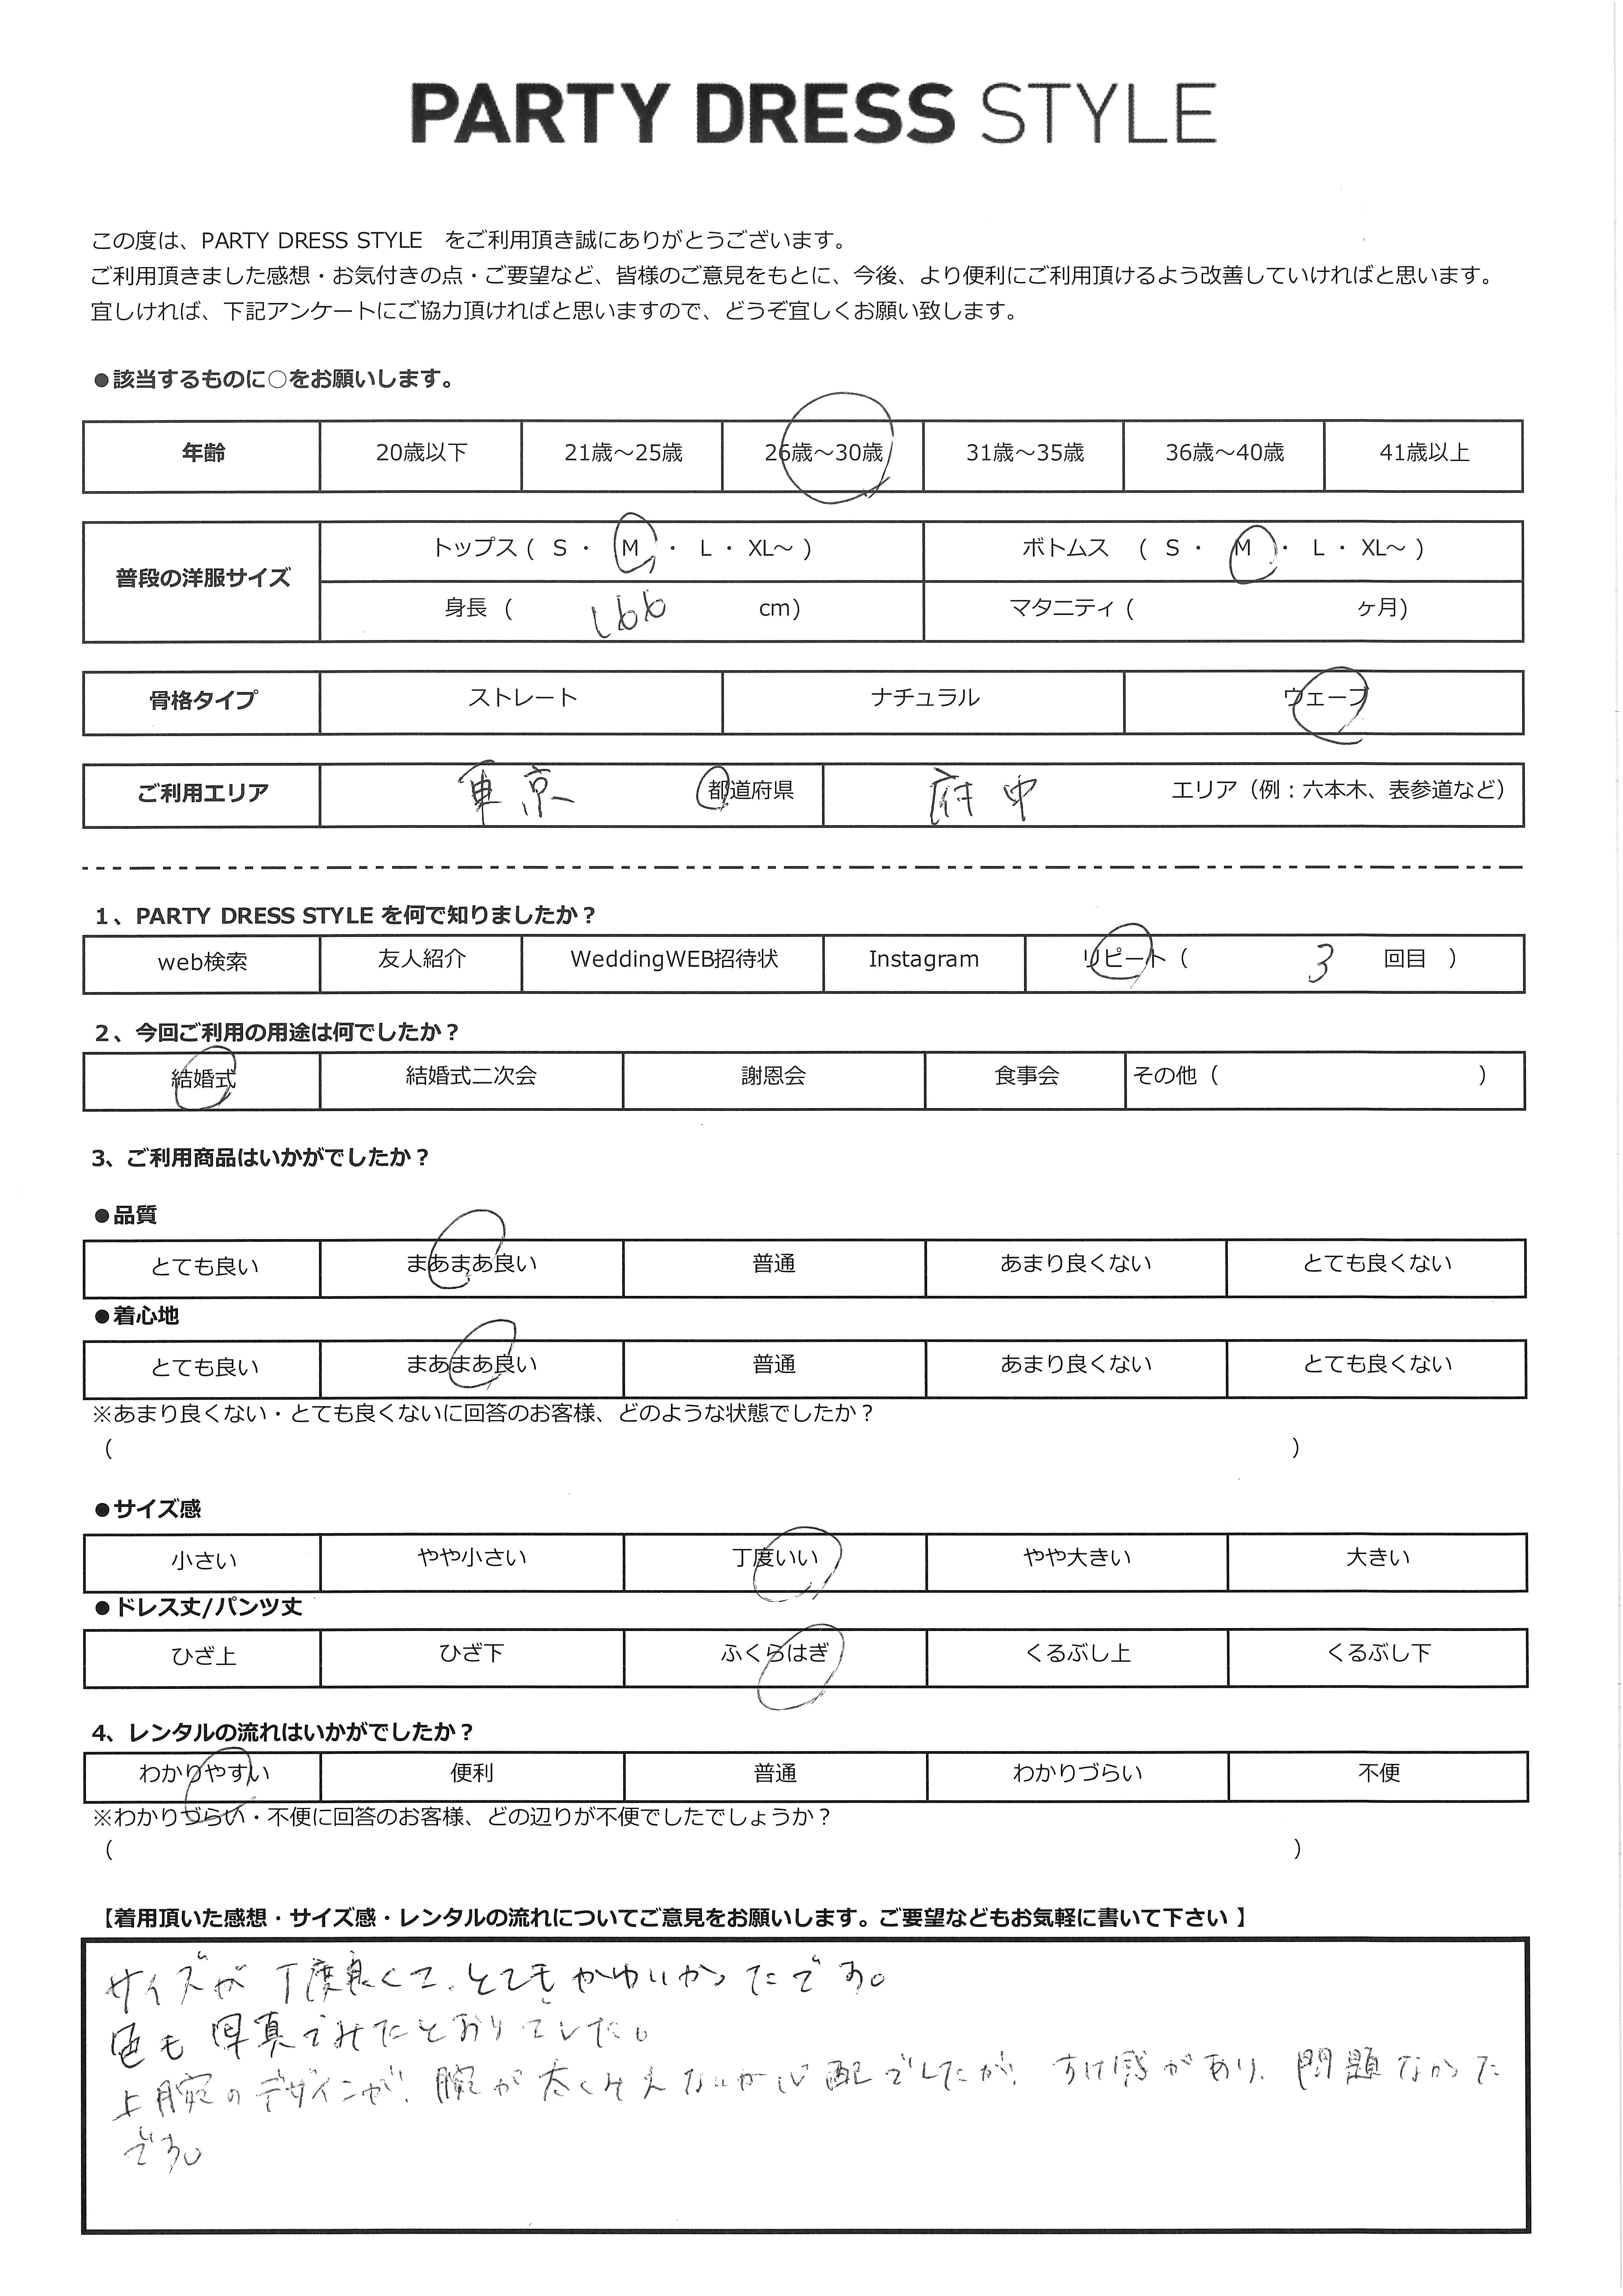 PARTY DRESS STYLE
この度は、PARTY DRESS STYLE　をご利用頂き誠にありがとうございます。
ご利用頂きました感想・お気付きの点・ご要望など、皆様のご意見をもとに、今後、より便利にご利用頂けるよう改善していければと思います。
宜しければ、下記アンケートにご協力頂ければと思いますので、どうぞ宜しくお願い致します。
●該当するものに○をお願いします。
年齢 20歳以下 21歳～25歳 26歳～30歳 31歳～35歳 36歳～40歳 41歳以上
普段の洋服サイズ
トップス ( S ・ M ・ L ・ XL～ ) ボトムス ( S ・ M ・ L ・ XL～ )
身長 ( 166 cm) マタニティ ( ヶ月)
骨格タイプ ストレート ナチュラル ウェーブ
ご利用エリア 東京 都道府県 府中 エリア（例：六本木、表参道など）
1、PARTY DRESS STYLE を何で知りましたか？
web検索 友人紹介 WeddingWEB招待状 Instagram リピート（ 3 回目 ）
2、今回ご利用の用途は何でしたか？
結婚式 結婚式二次会 謝恩会 食事会 その他（ ）
3、ご利用商品はいかがでしたか？
●品質
とても良い まあまあ良い 普通 あまり良くない とても良くない
●着心地
とても良い まあまあ良い 普通 あまり良くない とても良くない
※あまり良くない・とても良くないに回答のお客様、どのような状態でしたか？
（ ）
●サイズ感
小さい やや小さい 丁度いい やや大きい 大きい
●ドレス丈/パンツ丈
ひざ上 ひざ下 ふくらはぎ くるぶし上 くるぶし下
4、レンタルの流れはいかがでしたか？
わかりやすい 便利 普通 わかりづらい 不便
※わかりづらい・不便に回答のお客様、どの辺りが不便でしたでしょうか？
（ ）
【着用頂いた感想・サイズ感・レンタルの流れについてご意見をお願いします。ご要望などもお気軽に書いて下さい 】
サイズが丁度良くて、とてもかわいかったです。
色も写真でみたとおりでした。
上腕のデザインが、腕が太くみえないか心配でしたが、すけ感があり、問題なかった
です。